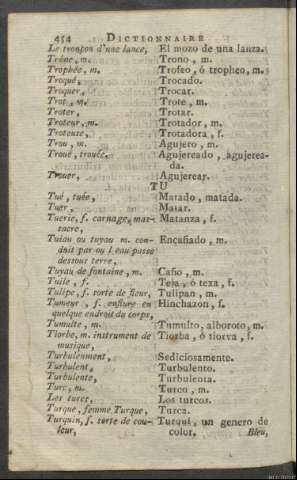 454 DICTIONNAIRE
Le tronçon d'une lance, El mozo de una lanza.
Trône, m. Trono, m.
Trophée, m. Trofeo, ó tropheo, m.
Troqué, Trocado.
Troquer, Trocar.
Trot, m. Trote, m.
Troter, Trotar.
Troteur, m. Trotador, m.
Troteuse, Trotadora, f.
Trou, m. Agujero, m.
Troué, trouée, Agujereado, agujerea-
da.
Trouer, Agujerear.
TU
Tué, tuée, Matado, matada.
Tuer, Matar.
Tuerie, f. carnage, mas- Matanza, f.
sacre,
Tuiau ou tuyau m. con- Encañado, m.
duit par ou l'eau passe
dessous terre,
Tuyau de fontaine, m. Caño, m.
Tuile, f. Teja, ó texa, f.
Tulipe, f. sorte de fleur, Tulipan, m.
Tumeur, f. enflure en Hinchazon, f.
quelque endroit du corps,
Tumulte, m. Tumulto, alboroto, m.
Tiorbe, m. instrument de Tiorba, ó tiorva, f.
musique,
Turbulenment, Sediciosamente.
Turbulent, Turbulento.
Turbulente, Turbulenta.
Turc, m. Turco, m.
Les turcs, Los turcos.
Turque, femme Turque, Turca.
Turquin, f. sorte de cou- Turquí, un genero de
leur, color. Bleu,